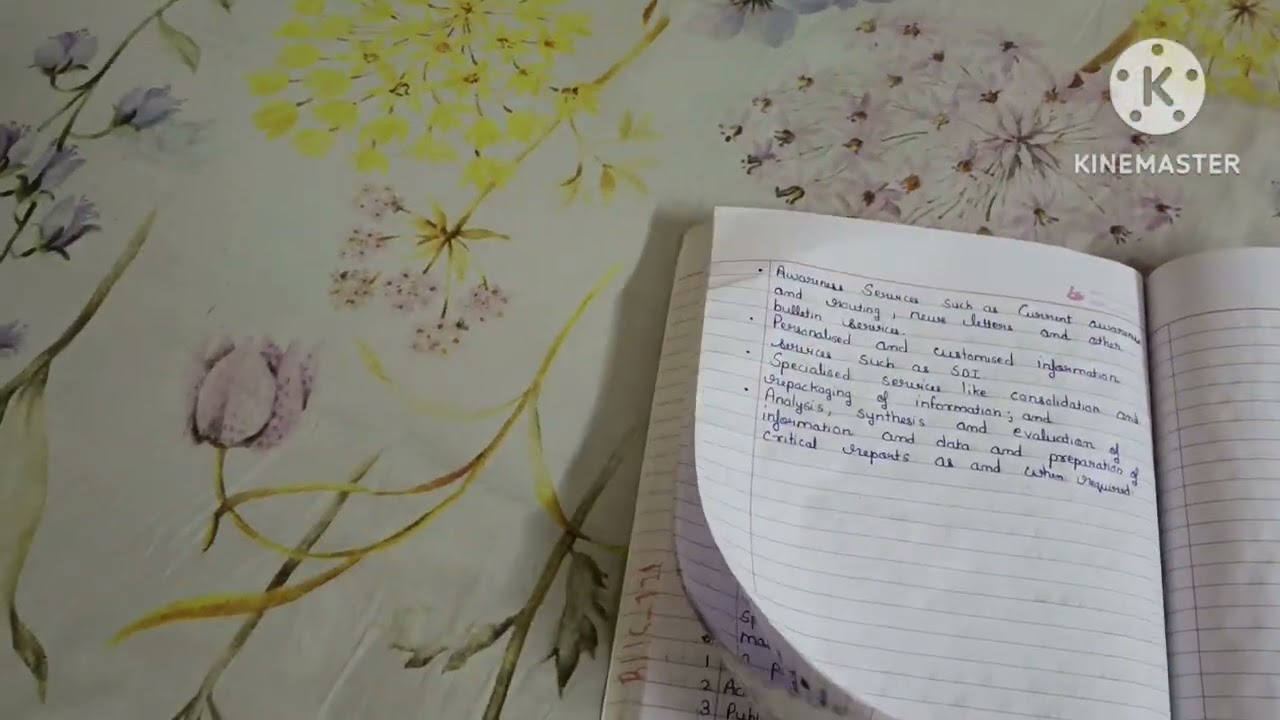 K
KINEMASTER
6
• Awareness Services such as Current awareness
and routing, news letters and other
bulletin services.
• Personalised and customised information
services such as SDI
• Specialised services like consolidation and
repackaging of information; and
• Analysis, synthesis and evaluation of
information and data and preparation of
critical reports as and when required.
BLIS-121
Sp
1
2 Ac
3 Publ